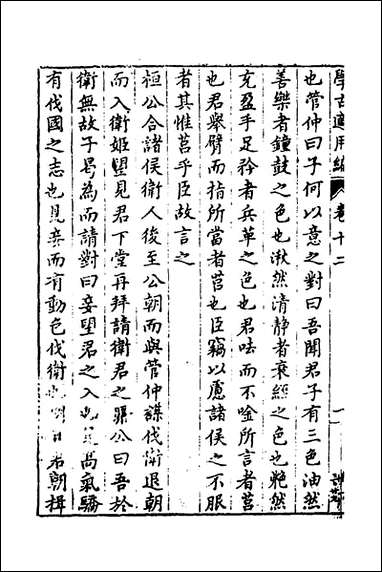 學古適用編 卷十二 一
也管仲曰子何以意之對曰吾聞君子有三色油然
善樂者鐘鼓之色也湫然清靜者衰絰之色也艴然
充盈手足矜者兵革之色也君呿而不唫所言者莒
也君舉臂而指所當者莒也臣竊以慮諸侯之不服
者其惟莒乎臣故言之
桓公合諸侯衛人後至公朝而與管仲謀伐衛退朝
而入衛姬望見君下堂再拜請衛君之罪公曰吾於
衛無故子曷為而請對曰妾望君之入也足高氣驕
有伐國之志也見妾而有動色伐衛也明日君朝揖